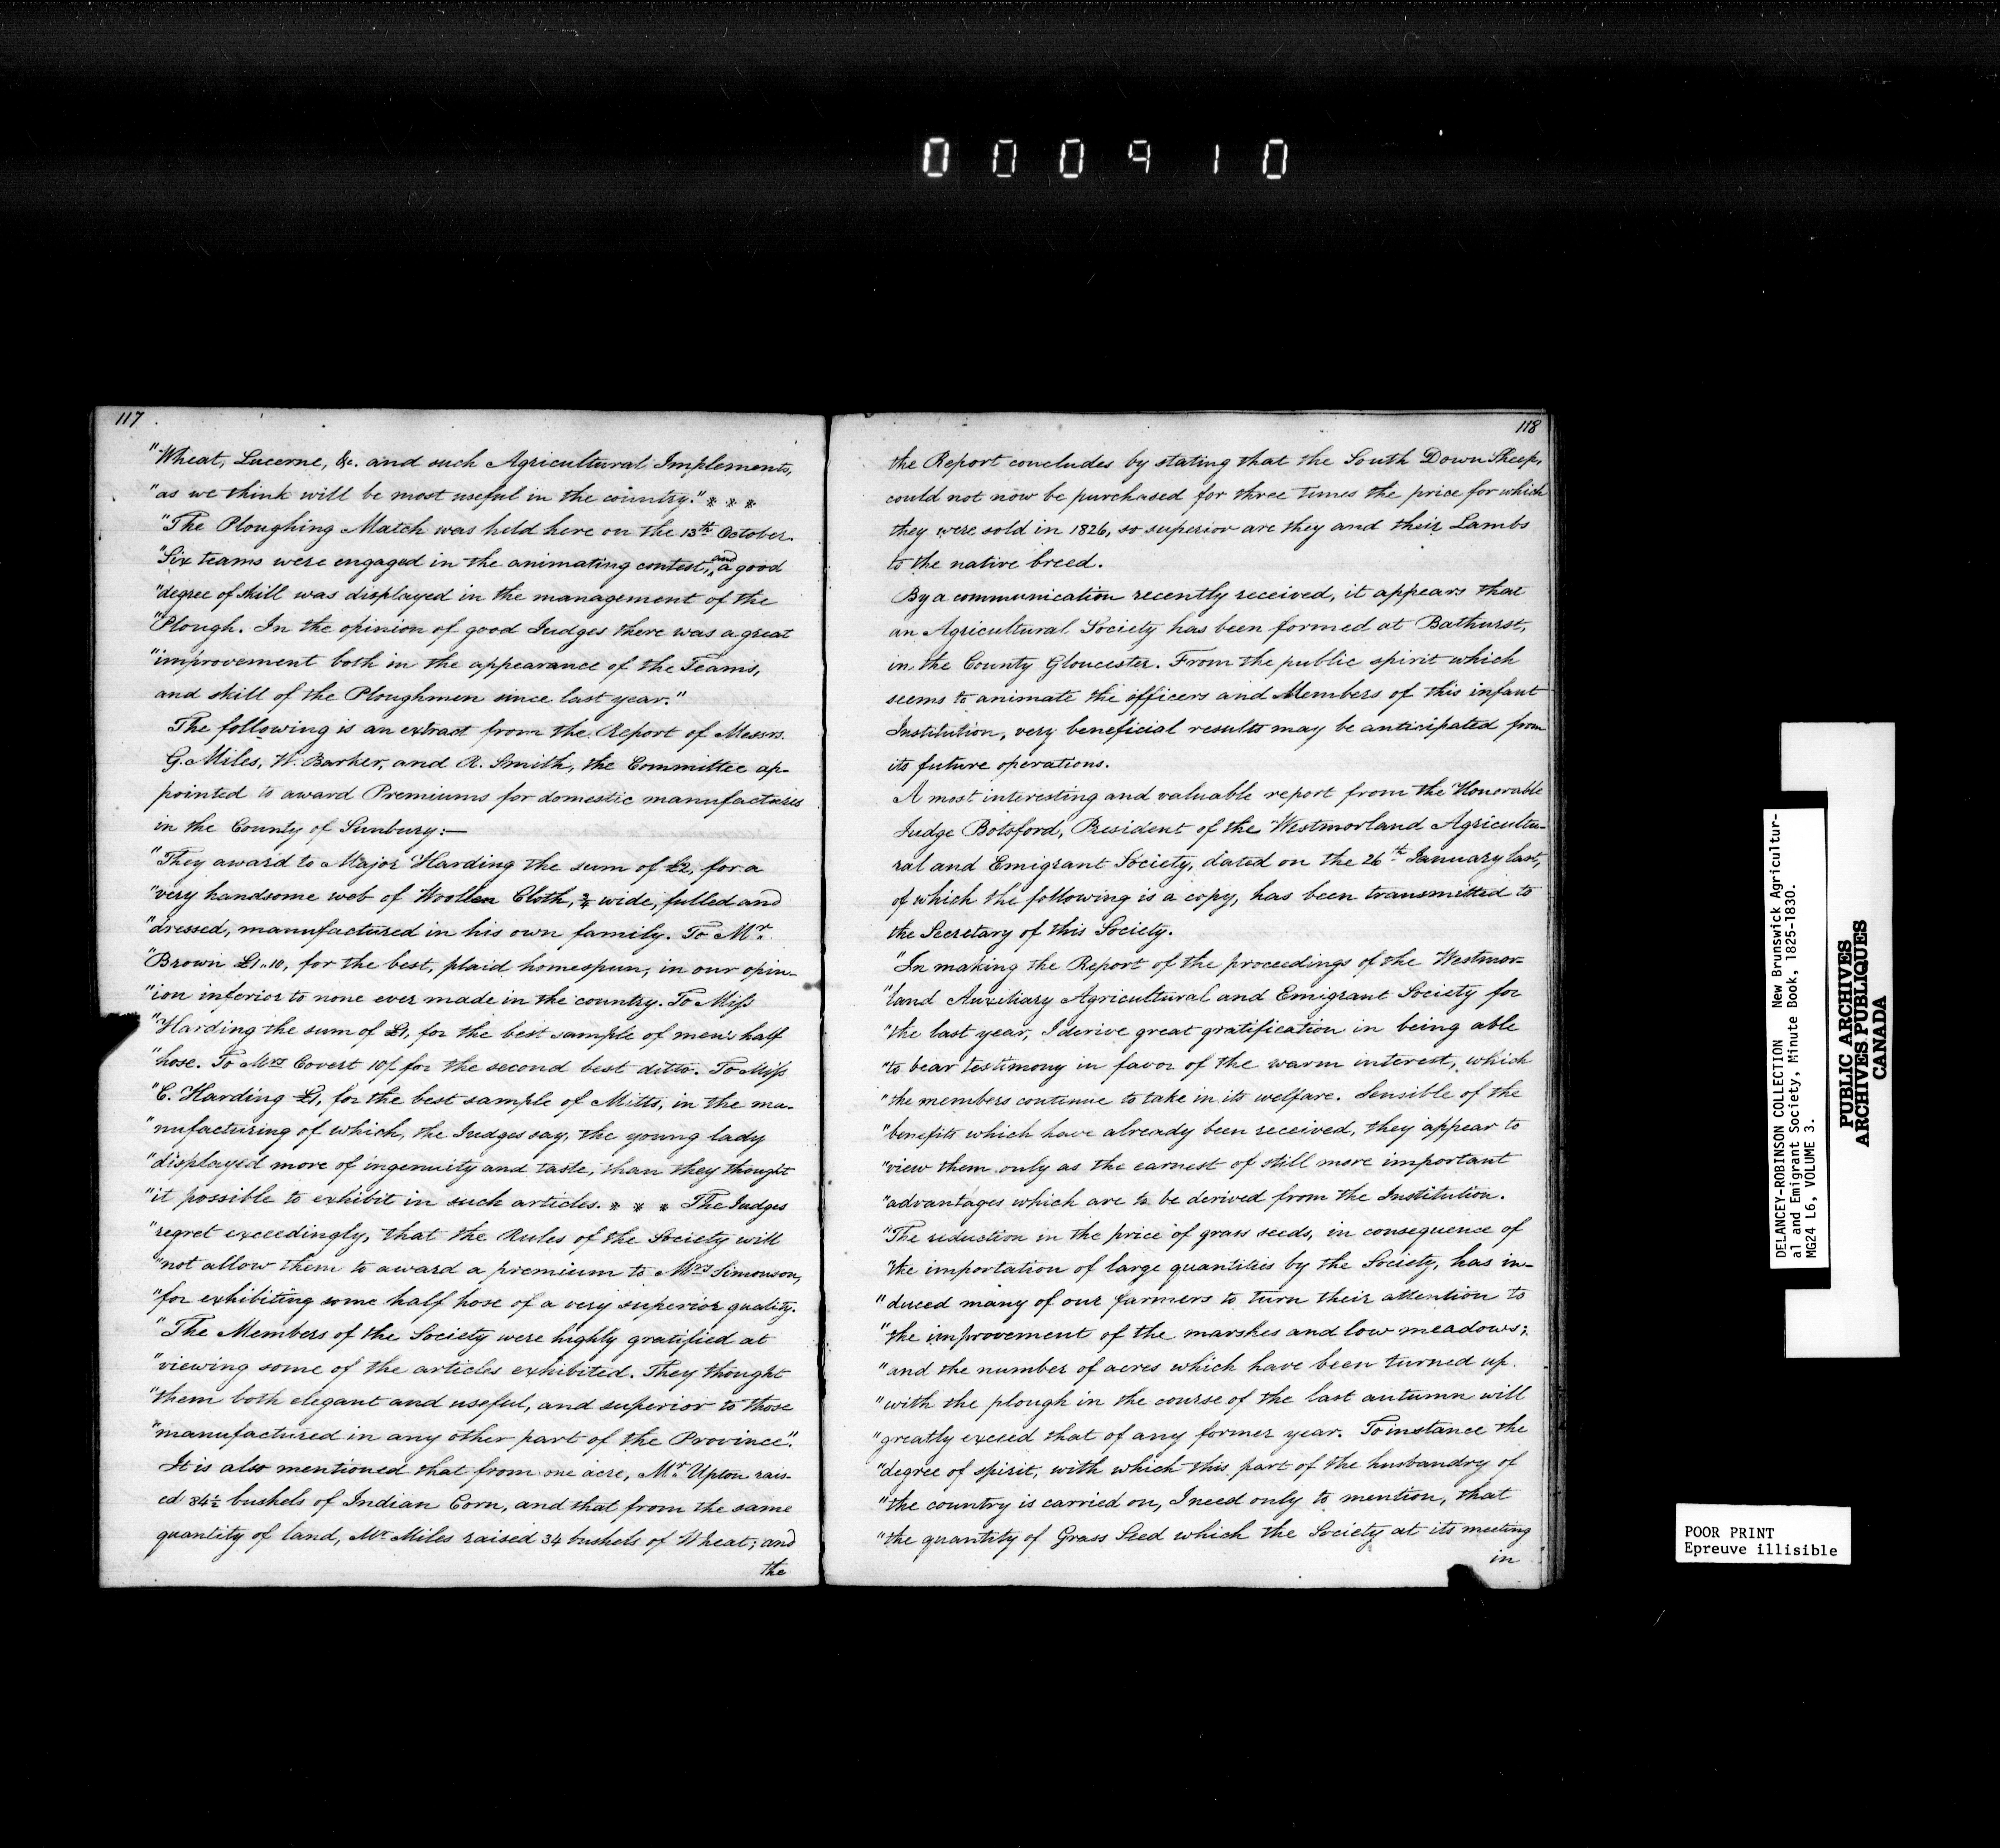 000910
117
"Wheat, Lucerne, &c. and such Agricultural Implements,
"as we think will be most useful in the country." * * *
"The Ploughing Match was held here on the 13th October.
"Six teams were engaged in the animating contest, and a good
"degree of skill was displayed in the management of the
"Plough. In the opinion of good Judges there was a great
"improvement both in the appearance of the Teams,
and skill of the Ploughmen since last year."
The following is an extract from the Report of Messrs.
G. Miles, W. Barker, and R. Smith, the Committee ap-
pointed to award Premiums for domestic manufactures
in the County of Sunbury:—
"They award to Major Harding the sum of £2, for a
"very handsome web of Woollen Cloth, 3/4 wide, fulled and
"dressed, manufactured in his own family. To Mr.
"Brown £1..10, for the best, plaid homespun, in our opin-
"ion inferior to none ever made in the country. To Miss
"Harding the sum of £1, for the best sample of men's half
"hose. To Mrs Covert 10/ for the second best ditto. To Miss
"C. Harding £1, for the best sample of Mitts, in the ma-
"nufacturing of which, the Judges say, the young lady
"displayed more of ingenuity and taste, than they thought
"it possible to exhibit in such articles. * * * The Judges
"regret exceedingly, that the Rules of the Society will
"not allow them to award a premium to Mrs Simonson,
"for exhibiting some half hose of a very superior quality.
"The Members of the Society were highly gratified at
"viewing some of the articles exhibited. They thought
"them both elegant and useful, and superior to those
"manufactured in any other part of the Province".
It is also mentioned that from one acre, Mr. Upton rais-
ed 84½ bushels of Indian Corn, and that from the same
quantity of land, Mr Miles raised 34 bushels of Wheat; and
the
118
the Report concludes by stating that the South Down Sheep,
could not now be purchased for three times the price for which
they were sold in 1826, so superior are they and their Lambs
to the native breed.
By a communication recently received, it appears that
an Agricultural Society has been formed at Bathurst,
in the County Gloucester. From the public spirit which
seems to animate the officers and Members of this infant
Institution, very beneficial results may be anticipated from
its future operations.
A most interesting and valuable report from the Honorable
Judge Botsford, President of the Westmorland Agricultu-
ral and Emigrant Society, dated on the 26th January last,
of which the following is a copy, has been transmitted to
the Secretary of this Society.
"In making the Report of the proceedings of the Westmor-
"land Auxiliary Agricultural and Emigrant Society for
"the last year, I derive great gratification in being able
"to bear testimony in favor of the warm interest, which
"the members continue to take in its welfare. Sensible of the
"benefits which have already been received, they appear to
"view them only as the earnest of still more important
"advantages which are to be derived from the Institution.
"The reduction in the price of grass seeds, in consequence of
"the importation of large quantities by the Society, has in-
"duced many of our farmers to turn their attention to
"the improvement of the marshes and low meadows;
"and the number of acres which have been turned up
"with the plough in the course of the last autumn will
"greatly exceed that of any former year. To instance the
"degree of spirit, with which this part of the husbandry of
"the country is carried on, I need only to mention, that
"the quantity of Grass Seed which the Society at its meeting
in
DELANCEY-ROBINSON COLLECTION New Brunswick Agricultur-
al and Emigrant Society, Minute Book, 1825-1830.
MG24 L6, VOLUME 3.
PUBLIC ARCHIVES
ARCHIVES PUBLIQUES
CANADA
POOR PRINT
Epreuve illisible